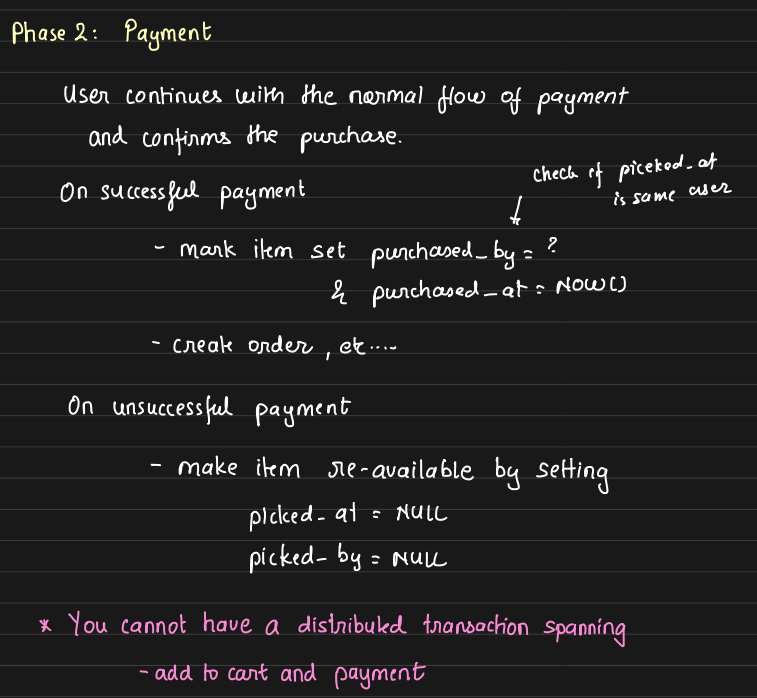 Phase 2: Payment
User continues with the normal flow of payment
and confirms the purchase.
check if piceked_at
is same user
On successful payment
- mark item set purchased_by = ?
& purchased_at = NOW()
- create order, etc....
On unsuccessful payment
- make item re-available by setting
picked_at = NULL
picked_by = NULL
* You cannot have a distributed transaction spanning
- add to cart and payment